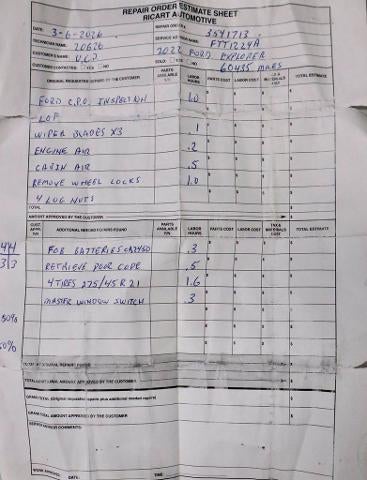 REPAIR ORDER ESTIMATE SHEET
RICART AUTOMOTIVE
DATE: 3-6-2026 REPAIR ORDER #: 3541713
TECHNICIAN NAME: 20626 SERVICE ADVISOR NAME: FTT1229A
CUSTOMER'S NAME: U.C.P 2022 FORD EXPLORER
CUSTOMER CONTACTED: YES NO SOLD: YES NO 60435 MILES
ORIGINAL REQUESTED REPAIRS BY THE CUSTOMER PARTS AVAILABLE Y/N LABOR HOURS PARTS COST LABOR COST TAX & MATERIALS COST TOTAL ESTIMATE
FORD C.P.O. INSPECTION 1.0
LOF
WIPER BLADES X3 .1
ENGINE AIR .2
CABIN AIR .5
REMOVE WHEEL LOCKS 1.0
4 LUG NUTS
TOTAL
AMOUNT APPROVED BY THE CUSTOMER
CUST. APPR. Y/N ADDITIONAL NEEDED REPAIRS FOUND PARTS AVAILABLE Y/N LABOR HOURS PARTS COST LABOR COST TAX & MATERIALS COST TOTAL ESTIMATE
4|4 FOB BATTERIES CR2450 .3
3|3 RETRIEVE DOOR CODE .5
4 TIRES 275/45R21 1.6
MASTER WINDOW SWITCH .3
50%
50%
TOTAL ADDITIONAL REPAIR FOUND
TOTAL ADDITIONAL AMOUNT APPROVED BY THE CUSTOMER
GRAND TOTAL (Original requested repairs plus additional needed repairs)
GRAND TOTAL AMOUNT APPROVED BY THE CUSTOMER
REPAIR REVIEW COMMENTS:
WORK APPROVED: DATE: TIME: